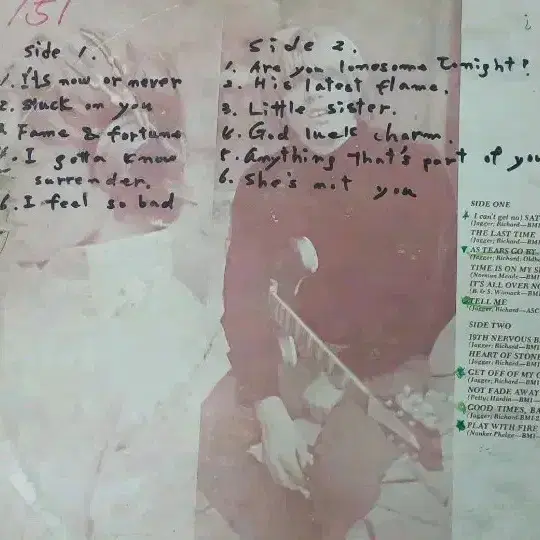 151
Side 1.
1. It's now or never
2. Stuck on you
3 Fame & fortune
4. I gotta know
surrender.
6. I feel so bad
Side 2.
1. Are you lonesome tonight?
2. His latest flame.
3. Little sister.
4. God luck charm.
5. Anything that's part of you
6. She's not you
SIDE ONE
I can't get no) SAT
(Jagger, Richard—BMI
THE LAST TIME
(Jagger, Richard—BMI
AS TEARS GO BY
(Jagger, Richard, Oldh
TIME IS ON MY S
(Norman Meade—BMI
IT'S ALL OVER NO
(B. & S. Womack—BMI
TELL ME
(Jagger, Richard—ASC
SIDE TWO
19TH NERVOUS B
(Jagger, Richard—BMI
HEART OF STONE
(Jagger, Richard—BMI
GET OFF OF MY C
(Jagger, Richard—BMI
NOT FADE AWAY
(Petty, Hardin—BMI—
GOOD TIMES, BA
(Jagger, Richard-BMI-2
PLAY WITH FIRE
(Nanker Phelge—BMI—